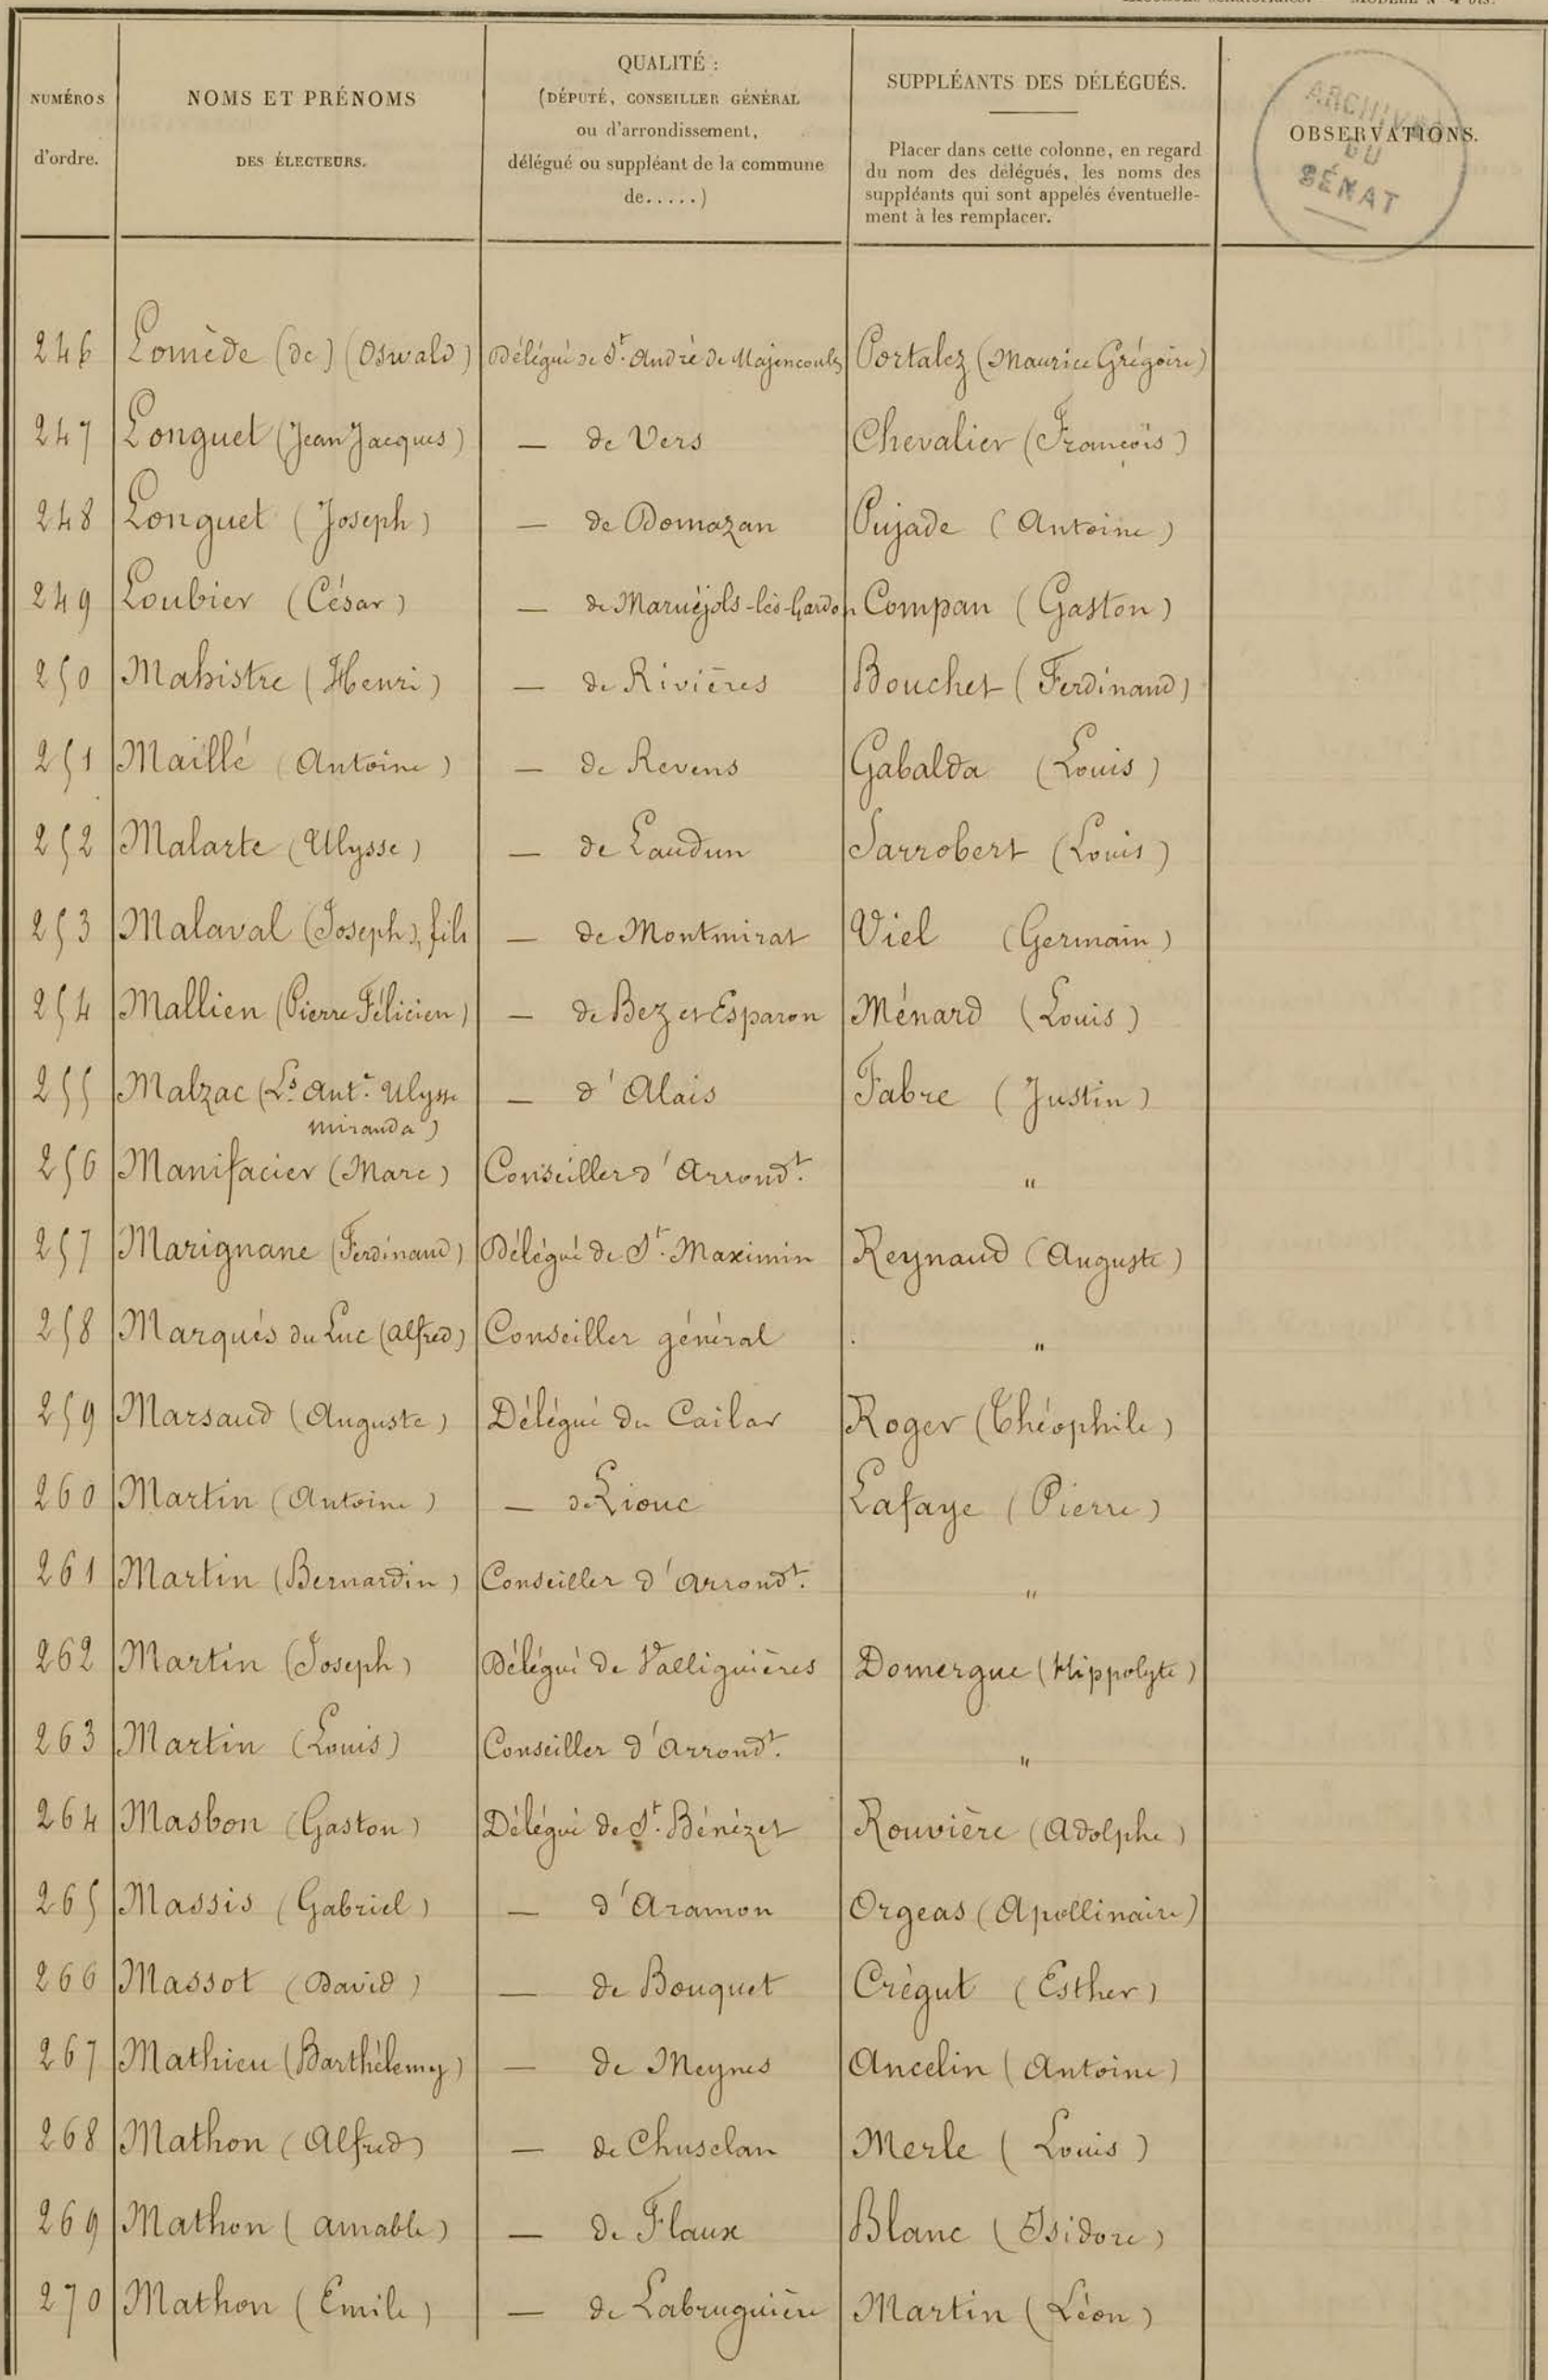 Élections sénatoriales. MODÈLE N° 4 bis.
NUMÉROS
d'ordre.
NOMS ET PRÉNOMS
DES ÉLECTEURS.
QUALITÉ :
(DÉPUTÉ, CONSEILLER GÉNÉRAL
ou d'arrondissement,
délégué ou suppléant de la commune
de.....)
SUPPLÉANTS DES DÉLÉGUÉS.
Placer dans cette colonne, en regard
du nom des délégués, les noms des
suppléants qui sont appelés éventuelle-
ment à les remplacer.
OBSERVATIONS.
ARCHIVES
DU
SÉNAT
246 Lomède (de) (Oswald) Délégué de St. André de Majencoules Portalez (Maurice Grégoire)
247 Longuet (Jean Jacques) — de Vers Chevalier (François)
248 Longuet (Joseph) — de Domazan Pujade (Antoine)
249 Loubier (César) — de Maruéjols-lès-Gardon Compan (Gaston)
250 Mahistre (Henri) — de Rivières Bouchet (Ferdinand)
251 Maillé (Antoine) — de Revens Gabalda (Louis)
252 Malarte (Ulysse) — de Laudun Sarrobert (Louis)
253 Malaval (Joseph), fils — de Montmirat Viel (Germain)
254 Mallien (Pierre Félicien) — de Bez et Esparon Ménard (Louis)
255 Malzac (Ls. Ant.e Ulysse — d'Alais Fabre (Justin)
Miranda)
256 Manifacier (Marc) Conseiller d'Arrondt. "
257 Marignane (Ferdinand) Délégué de St. Maximin Reynaud (Auguste)
258 Marquès du Luc (Alfred) Conseiller général "
259 Marsaud (Auguste) Délégué du Cailar Roger (Théophile)
260 Martin (Antoine) — de Liouc Lafaye (Pierre)
261 Martin (Bernardin) Conseiller d'Arrondt. "
262 Martin (Joseph) Délégué de Valliguières Domergue (Hippolyte)
263 Martin (Louis) Conseiller d'Arrondt. "
264 Masbon (Gaston) Délégué de St. Bénézet Rouvière (Adolphe)
265 Massis (Gabriel) — d'Aramon Orgeas (Apollinaire)
266 Massot (David) — de Bouquet Crègut (Esther)
267 Mathieu (Barthélemy) — de Meynes Ancelin (Antoine)
268 Mathon (Alfred) — de Chusclan Merle (Louis)
269 Mathon (Amable) — de Flaux Blanc (Isidore)
270 Mathon (Emile) — de Labruguière Martin (Léon)